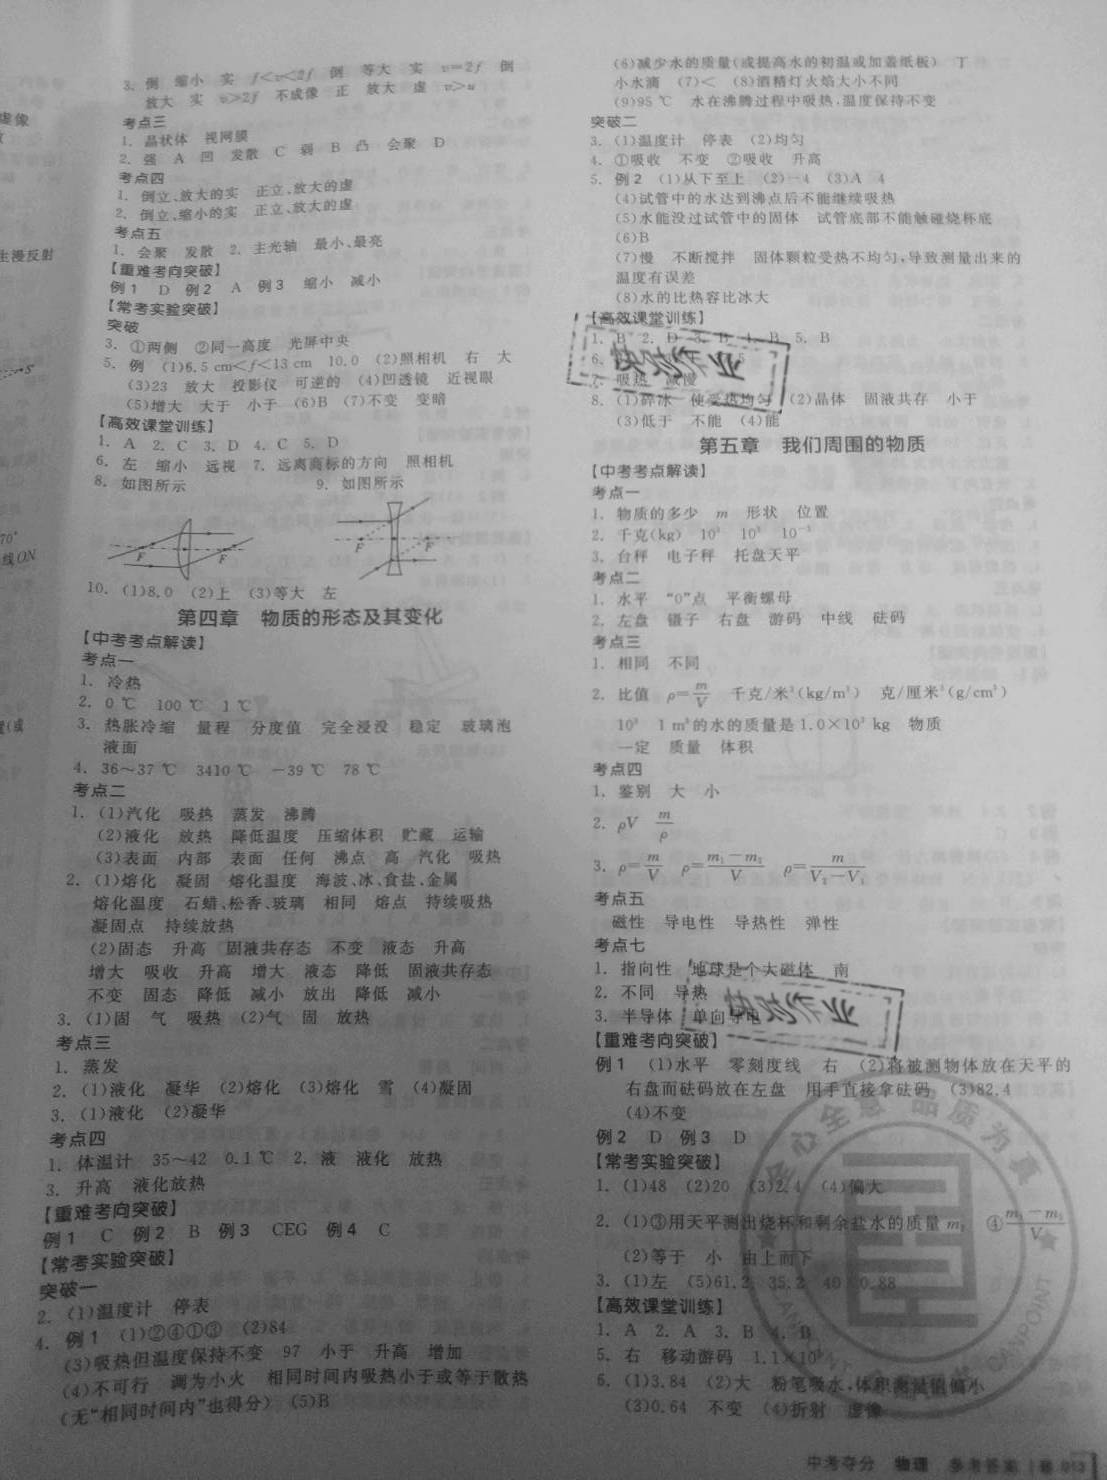 虚像
生漫反射
70°
线ON
3. 倒 缩小 实 f<v<2f 倒 等大 实 v=2f 倒
放大 实 v>2f 不成像 正 放大 虚 v>u
考点三
1. 晶状体 视网膜
2. 强 A 凹 发散 C 弱 B 凸 会聚 D
考点四
1. 倒立、放大的实 正立、放大的虚
2. 倒立、缩小的实 正立、放大的虚
考点五
1. 会聚 发散 2. 主光轴 最小、最亮
【重难考向突破】
例1 D 例2 A 例3 缩小 减小
【常考实验突破】
突破
3. ①两侧 ②同一高度 光屏中央
5. 例 (1)6.5 cm<f<13 cm 10.0 (2)照相机 右 大
(3)23 放大 投影仪 可逆的 (4)凹透镜 近视眼
(5)增大 大于 小于 (6)B (7)不变 变暗
【高效课堂训练】
1. A 2. C 3. D 4. C 5. D
6. 左 缩小 远视 7. 远离商标的方向 照相机
8. 如图所示 9. 如图所示
F F F F
10. (1)8.0 (2)上 (3)等大 左
第四章 物质的形态及其变化
【中考考点解读】
考点一
1. 冷热
2. 0 ℃ 100 ℃ 1 ℃
3. 热胀冷缩 量程 分度值 完全浸没 稳定 玻璃泡
液面
4. 36～37 ℃ 3410 ℃ －39 ℃ 78 ℃
考点二
1. (1)汽化 吸热 蒸发 沸腾
(2)液化 放热 降低温度 压缩体积 贮藏 运输
(3)表面 内部 表面 任何 沸点 高 汽化 吸热
2. (1)熔化 凝固 熔化温度 海波、冰、食盐、金属
熔化温度 石蜡、松香、玻璃 相同 熔点 持续吸热
凝固点 持续放热
(2)固态 升高 固液共存态 不变 液态 升高
增大 吸收 升高 增大 液态 降低 固液共存态
不变 固态 降低 减小 放出 降低 减小
3. (1)固 气 吸热 (2)气 固 放热
考点三
1. 蒸发
2. (1)液化 凝华 (2)熔化 (3)熔化 雪 (4)凝固
3. (1)液化 (2)凝华
考点四
1. 体温计 35～42 0.1 ℃ 2. 液 液化 放热
3. 升高 液化放热
【重难考向突破】
例1 C 例2 B 例3 CEG 例4 C
【常考实验突破】
突破一
2. (1)温度计 停表
4. 例1 (1)②④①③ (2)84
(3)吸热但温度保持不变 97 小于 升高 增加
(4)不可行 调为小火 相同时间内吸热小于或等于散热
(无“相同时间内”也得分) (5)B
(6)减少水的质量(或提高水的初温或加盖纸板) 丁
小水滴 (7)< (8)酒精灯火焰大小不同
(9)95 ℃ 水在沸腾过程中吸热,温度保持不变
突破二
3. (1)温度计 停表 (2)均匀
4. ①吸收 不变 ②吸收 升高
5. 例2 (1)从下至上 (2)－4 (3)A 4
(4)试管中的水达到沸点后不能继续吸热
(5)水能没过试管中的固体 试管底部不能触碰烧杯底
(6)B
(7)慢 不断搅拌 固体颗粒受热不均匀,导致测量出来的
温度有误差
(8)水的比热容比冰大
【高效课堂训练】
1. B 2. D 3. B 4. B 5. B
6.
7. 吸热 减慢
8. (1)碎冰 使受热均匀 (2)晶体 固液共存 小于
(3)低于 不能 (4)能
第五章 我们周围的物质
【中考考点解读】
考点一
1. 物质的多少 m 形状 位置
2. 千克(kg) 10³ 10³ 10⁻³
3. 台秤 电子秤 托盘天平
考点二
1. 水平 “0”点 平衡螺母
2. 左盘 镊子 右盘 游码 中线 砝码
考点三
1. 相同 不同
2. 比值 ρ=m/V 千克/米³(kg/m³) 克/厘米³(g/cm³)
10³ 1 m³的水的质量是1.0×10³ kg 物质
一定 质量 体积
考点四
1. 鉴别 大 小
2. ρV m/ρ
3. ρ=m/V ρ=(m₁－m₂)/V ρ=m/(V₂－V₁)
考点五
磁性 导电性 导热性 弹性
考点七
1. 指向性 地球是个大磁体 南
2. 不同 导热
3. 半导体 单向导电
【重难考向突破】
例1 (1)水平 零刻度线 右 (2)将被测物体放在天平的
右盘而砝码放在左盘 用手直接拿砝码 (3)82.4
(4)不变
例2 D 例3 D
【常考实验突破】
1. (1)48 (2)20 (3)2.4 (4)偏大
2. (1)③用天平测出烧杯和剩余盐水的质量m₂ ④(m₁－m₂)/V
(2)等于 小 由上而下
3. (1)左 (5)61.2 35.2 40 0.88
【高效课堂训练】
1. A 2. A 3. B 4. B
5. 右 移动游码 1.1×10³
6. (1)3.84 (2)大 粉笔吸水,体积测量值偏小
(3)0.64 不变 (4)折射 虚像
全心全意 品质为真
CANPOINT
中考夺分 物理 参考答案